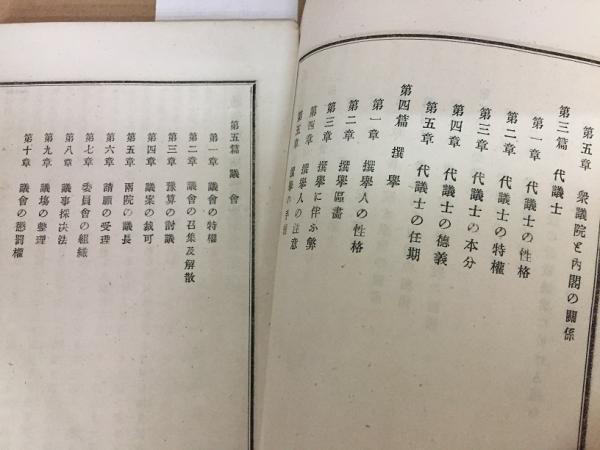 第五章 衆議院と內閣の關係
第三篇 代議士
第一章 代議士の性格
第二章 代議士の特權
第三章 代議士の本分
第四章 代議士の德義
第五章 代議士の任期
第四篇 撰擧
第一章 撰擧人の性格
第二章 撰擧區畫
第三章 撰擧に伴ふ弊
第四章 撰擧人の注意
第五章 撰擧の手續
第五篇 議會
第一章 議會の特權
第二章 議會の召集及解散
第三章 豫算の討議
第四章 議案の裁可
第五章 兩院の議長
第六章 請願の受理
第七章 委員會の組織
第八章 議事採決法
第九章 議塲の整理
第十章 議會の懲罰權